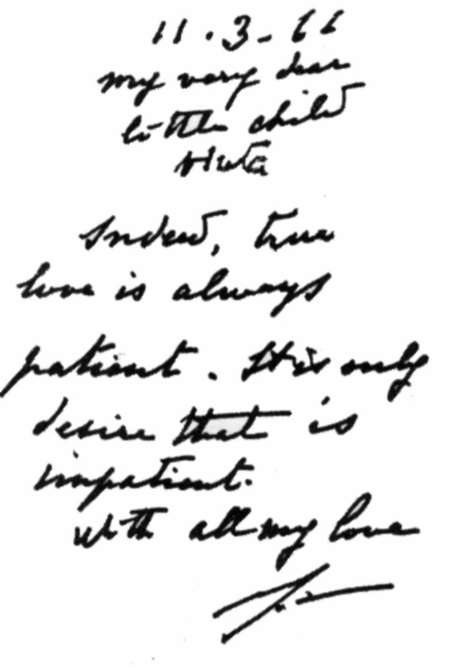 11.3.66
my very dear
little child
Huta
Indeed, true
love is always
patient. It is only
desire that is
impatient.
with all my love